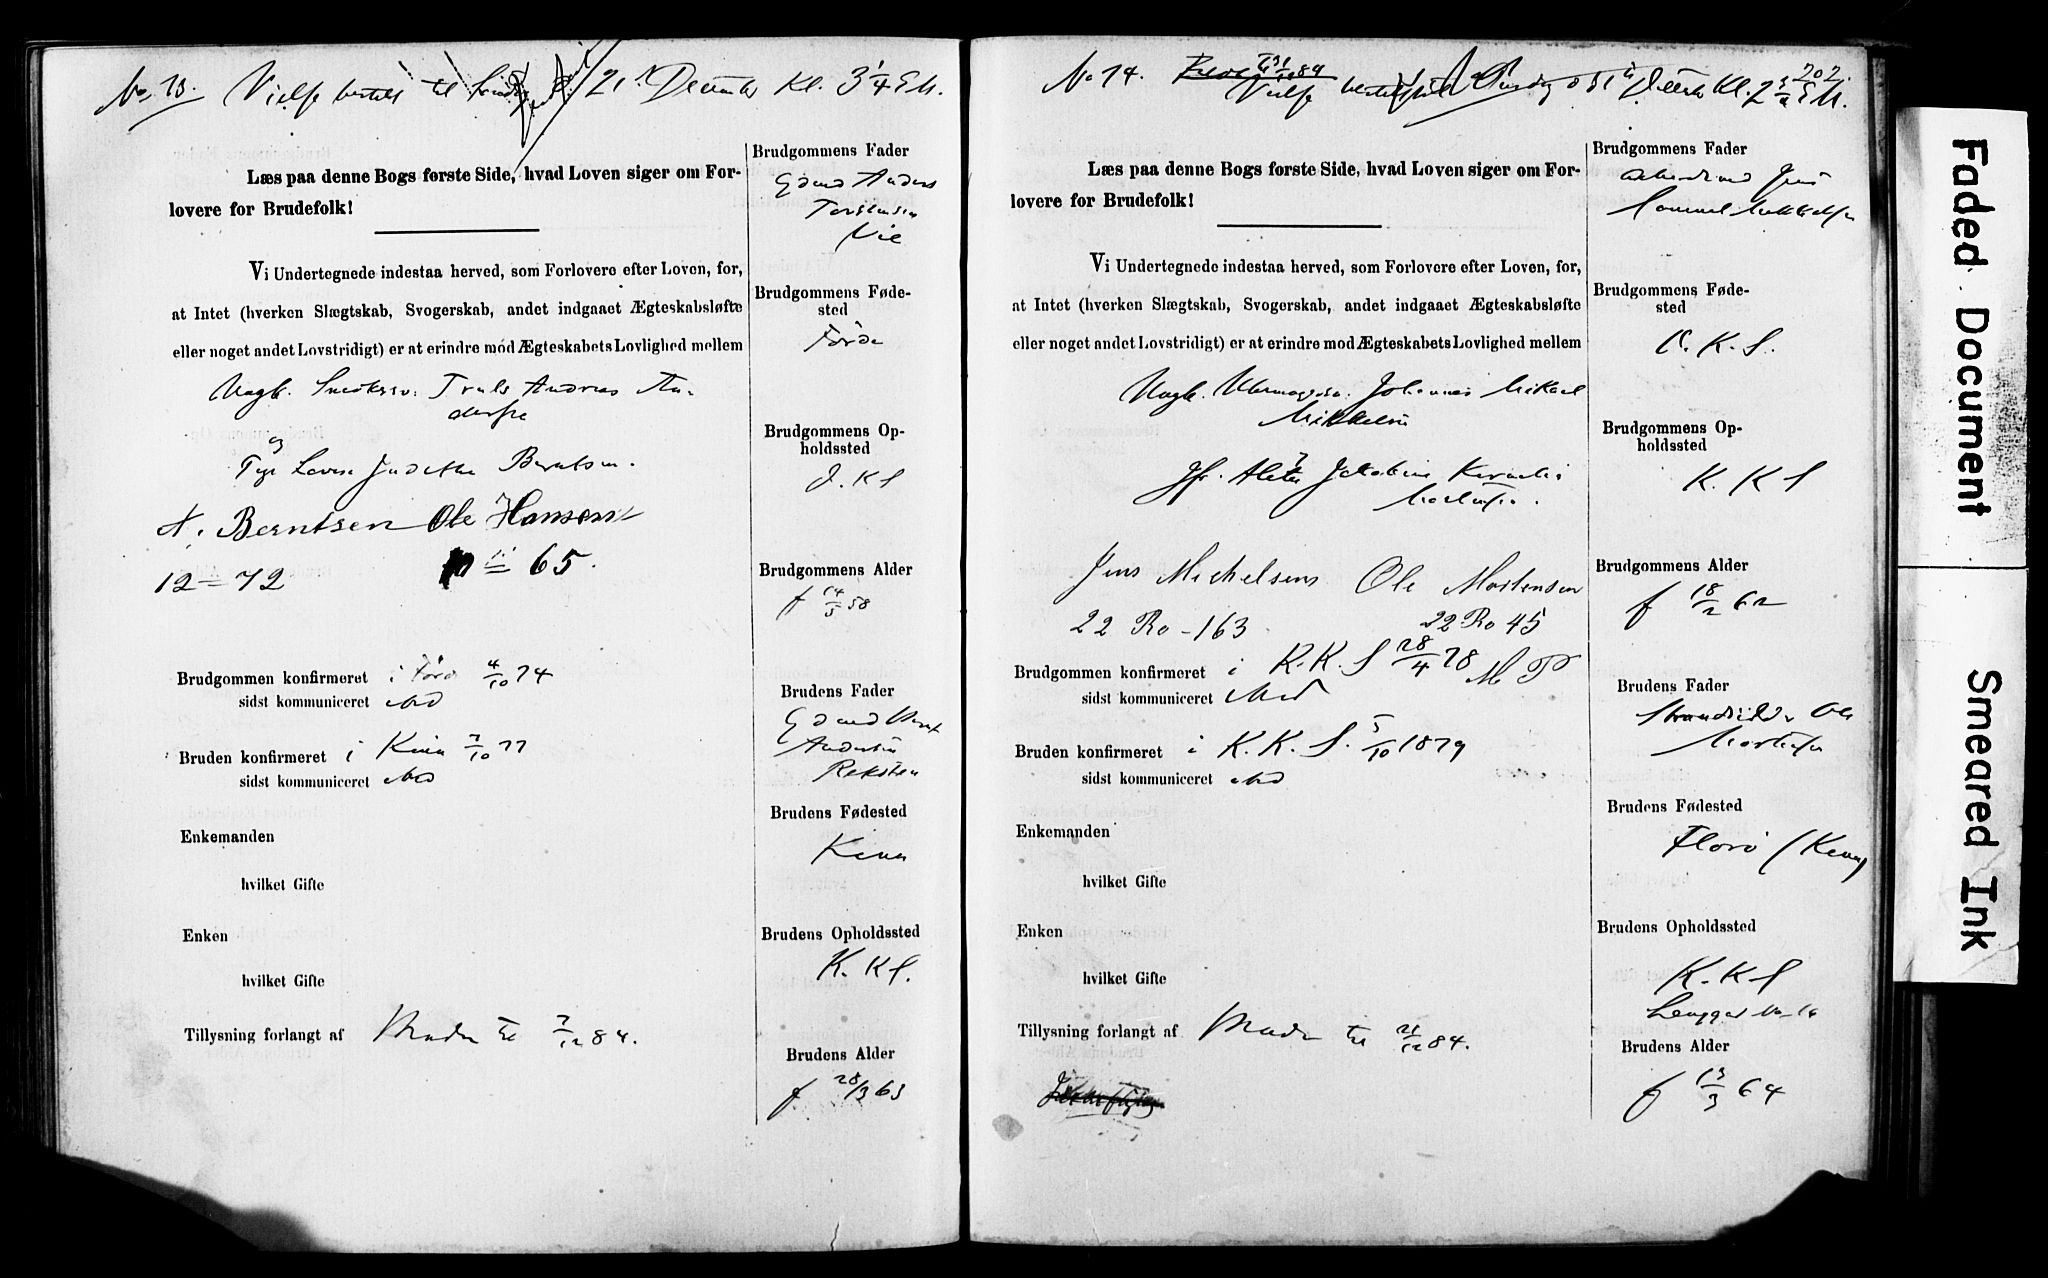 No. 13. Vielse bestilt til 21 December Kl. 3 1/4 E.M.
Læs paa denne Bogs første Side, hvad Loven siger om For-
lovere for Brudefolk!
Vi Undertegnede indestaa herved, som Forlovere efter Loven, for,
at Intet (hverken Slægtskab, Svogerskab, andet indgaaet Ægteskabsløfte
eller noget andet Lovstridigt) er at erindre mod Ægteskabets Lovlighed mellem
Ungk. Truls Andreas An-
dersen
og
Pige Lovise Berntsen.
A. Berntsen Ole Hansen
12 = 72 10 = 65.
Brudgommen konfirmeret i Førde 4/10 74
sidst kommuniceret
Bruden konfirmeret i Kinn 7/10 77
sidst kommuniceret
Enkemanden
hvilket Gifte
Enken
hvilket Gifte
Tillysning forlangt af Moder til 7/12 84.
Brudgommens Fader
Gdmd Anders
Torstensen
Vie
Brudgommens Føde-
sted
Førde
Brudgommens Op-
holdssted
J. K S
Brudgommens Alder
f 14/5 58
Brudens Fader
Gdmd
Andersen
Reksten
Brudens Fødested
Kinn
Brudens Opholdssted
K. K S.
Brudens Alder
f. 28/3 63
202.
No 14. Vielse 2 3/4 E.M.
Læs paa denne Bogs første Side, hvad Loven siger om For-
lovere for Brudefolk!
Vi Undertegnede indestaa herved, som Forlovere efter Loven, for,
at Intet (hverken Slægtskab, Svogerskab, andet indgaaet Ægteskabsløfte
eller noget andet Lovstridigt) er at erindre mod Ægteskabets Lovlighed mellem
Ungk. Johannes Mikael
Mikkelsen
og
Jfr. Jakobine
Mortensen.
Jens Michelsens Ole Mortensen
22 Ro - 163 22 Ro 45
Brudgommen konfirmeret i K. K. S 28/4 78 M P
sidst kommuniceret
Bruden konfirmeret i K. K. S. 5/10 1879
sidst kommuniceret
Enkemanden
hvilket Gifte
Enken
hvilket Gifte
Tillysning forlangt af Moder til 21/12 84.
Brudgommens Fader
Arbeidsmd Jens
Mikkelsen
Brudgommens Føde-
sted
K. S.
Brudgommens Op-
holdssted
K. K S
Brudgommens Alder
f 18/2 62
Brudens Fader
Strandsidder Ole
Mortensen
Brudens Fødested
Florø (Kinn)
Brudens Opholdssted
K. K S
Brudens Alder
f 13/3 64
Faded Document
Smeared Ink